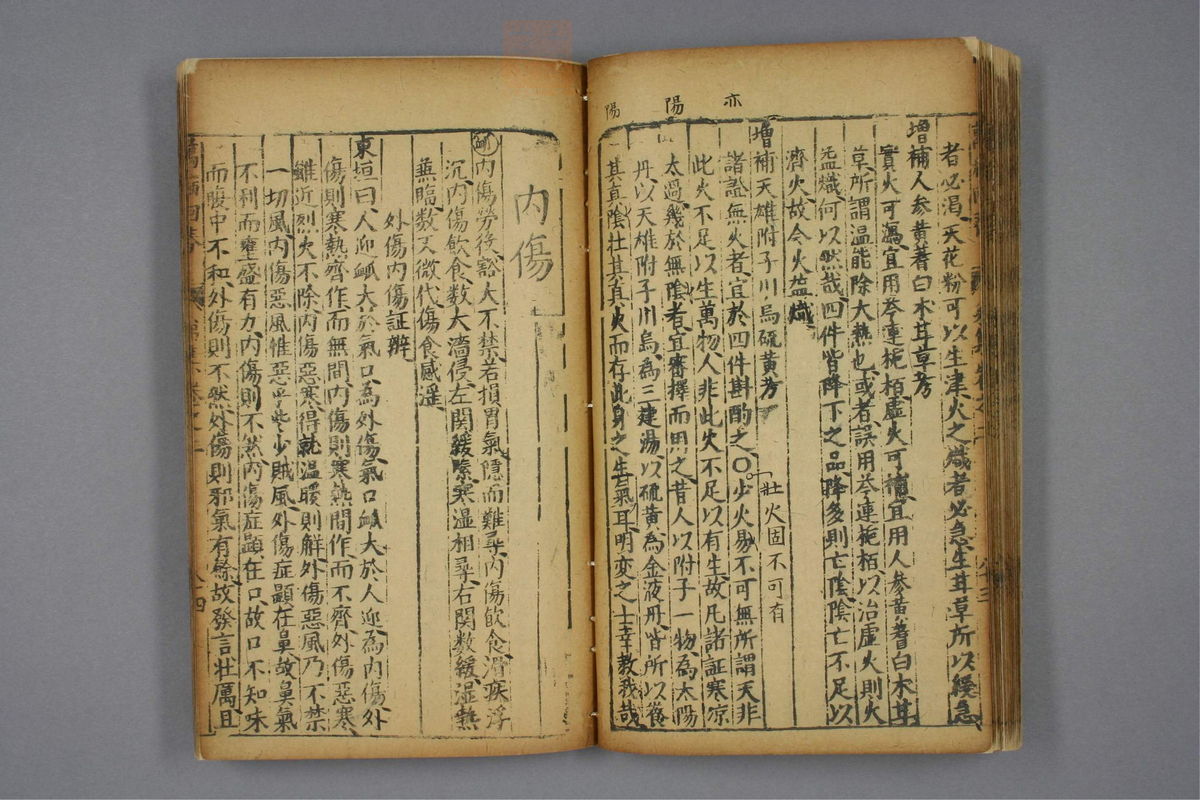 亦
陽
陽
者必渴天花粉可以生津火之熾者必急生甘草所以緩急
增補人參黄蓍白朮甘草芳
實火可瀉宜用芩連梔栢虛火可補宜用人參黄蓍白朮甘
草所謂温能除大熱也或者誤用芩連梔栢以治虛火則火
益熾何以然哉四件皆降下之品降多則亡陰陰亡不足以
濟火故令火益熾
增補天雄附子川烏硫黄芳
壯火固不可有
諸證無火者宜於四件斟酌之○少火易不可無所謂天非
此火不足以生萬物人非此火不足以有生故凡諸証寒凉
太過幾於無陰者宜審擇而用之昔人以附子一物為太陽
丹以天雄附子川烏為三建湯以硫黄為金液丹皆所以復
其真陰壮其真火而存此身之生氣耳明变之士幸教我哉
内傷
内傷勞役豁大不禁若損胃氣隱而難尋内傷飲食滑疾浮
沉内傷飲食数大濇侵左関緩緊寒湿相尋右関数緩湿熱
蒸臨数又微代傷食感滛
外傷内傷証辨
東垣曰人迎䘑大於氣口為外傷氣口䘑大於人迎為内傷外
傷則寒熱齊作而無間内傷則寒熱間作而不齊外傷惡寒
雖近烈火不除内傷惡寒得就温暖則解外傷惡風乃不禁
一切風内傷惡風惟惡些少賊風外傷症顯在鼻故鼻氣
不利而壅盛有力内傷則不然内傷症顯在口故口不知味
而腹中不和外傷則不然外傷則邪氣有餘故發言壮厲且